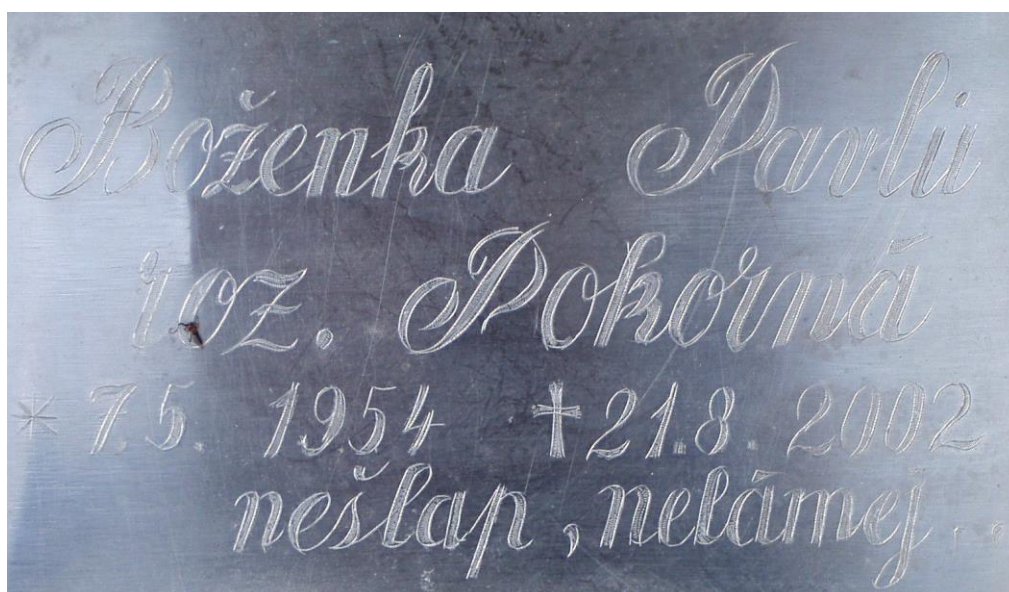 Boženka Pavlů
roz. Pokorná
* 7.5. 1954 ✝ 21.8. 2002
nešlap, nelámej...